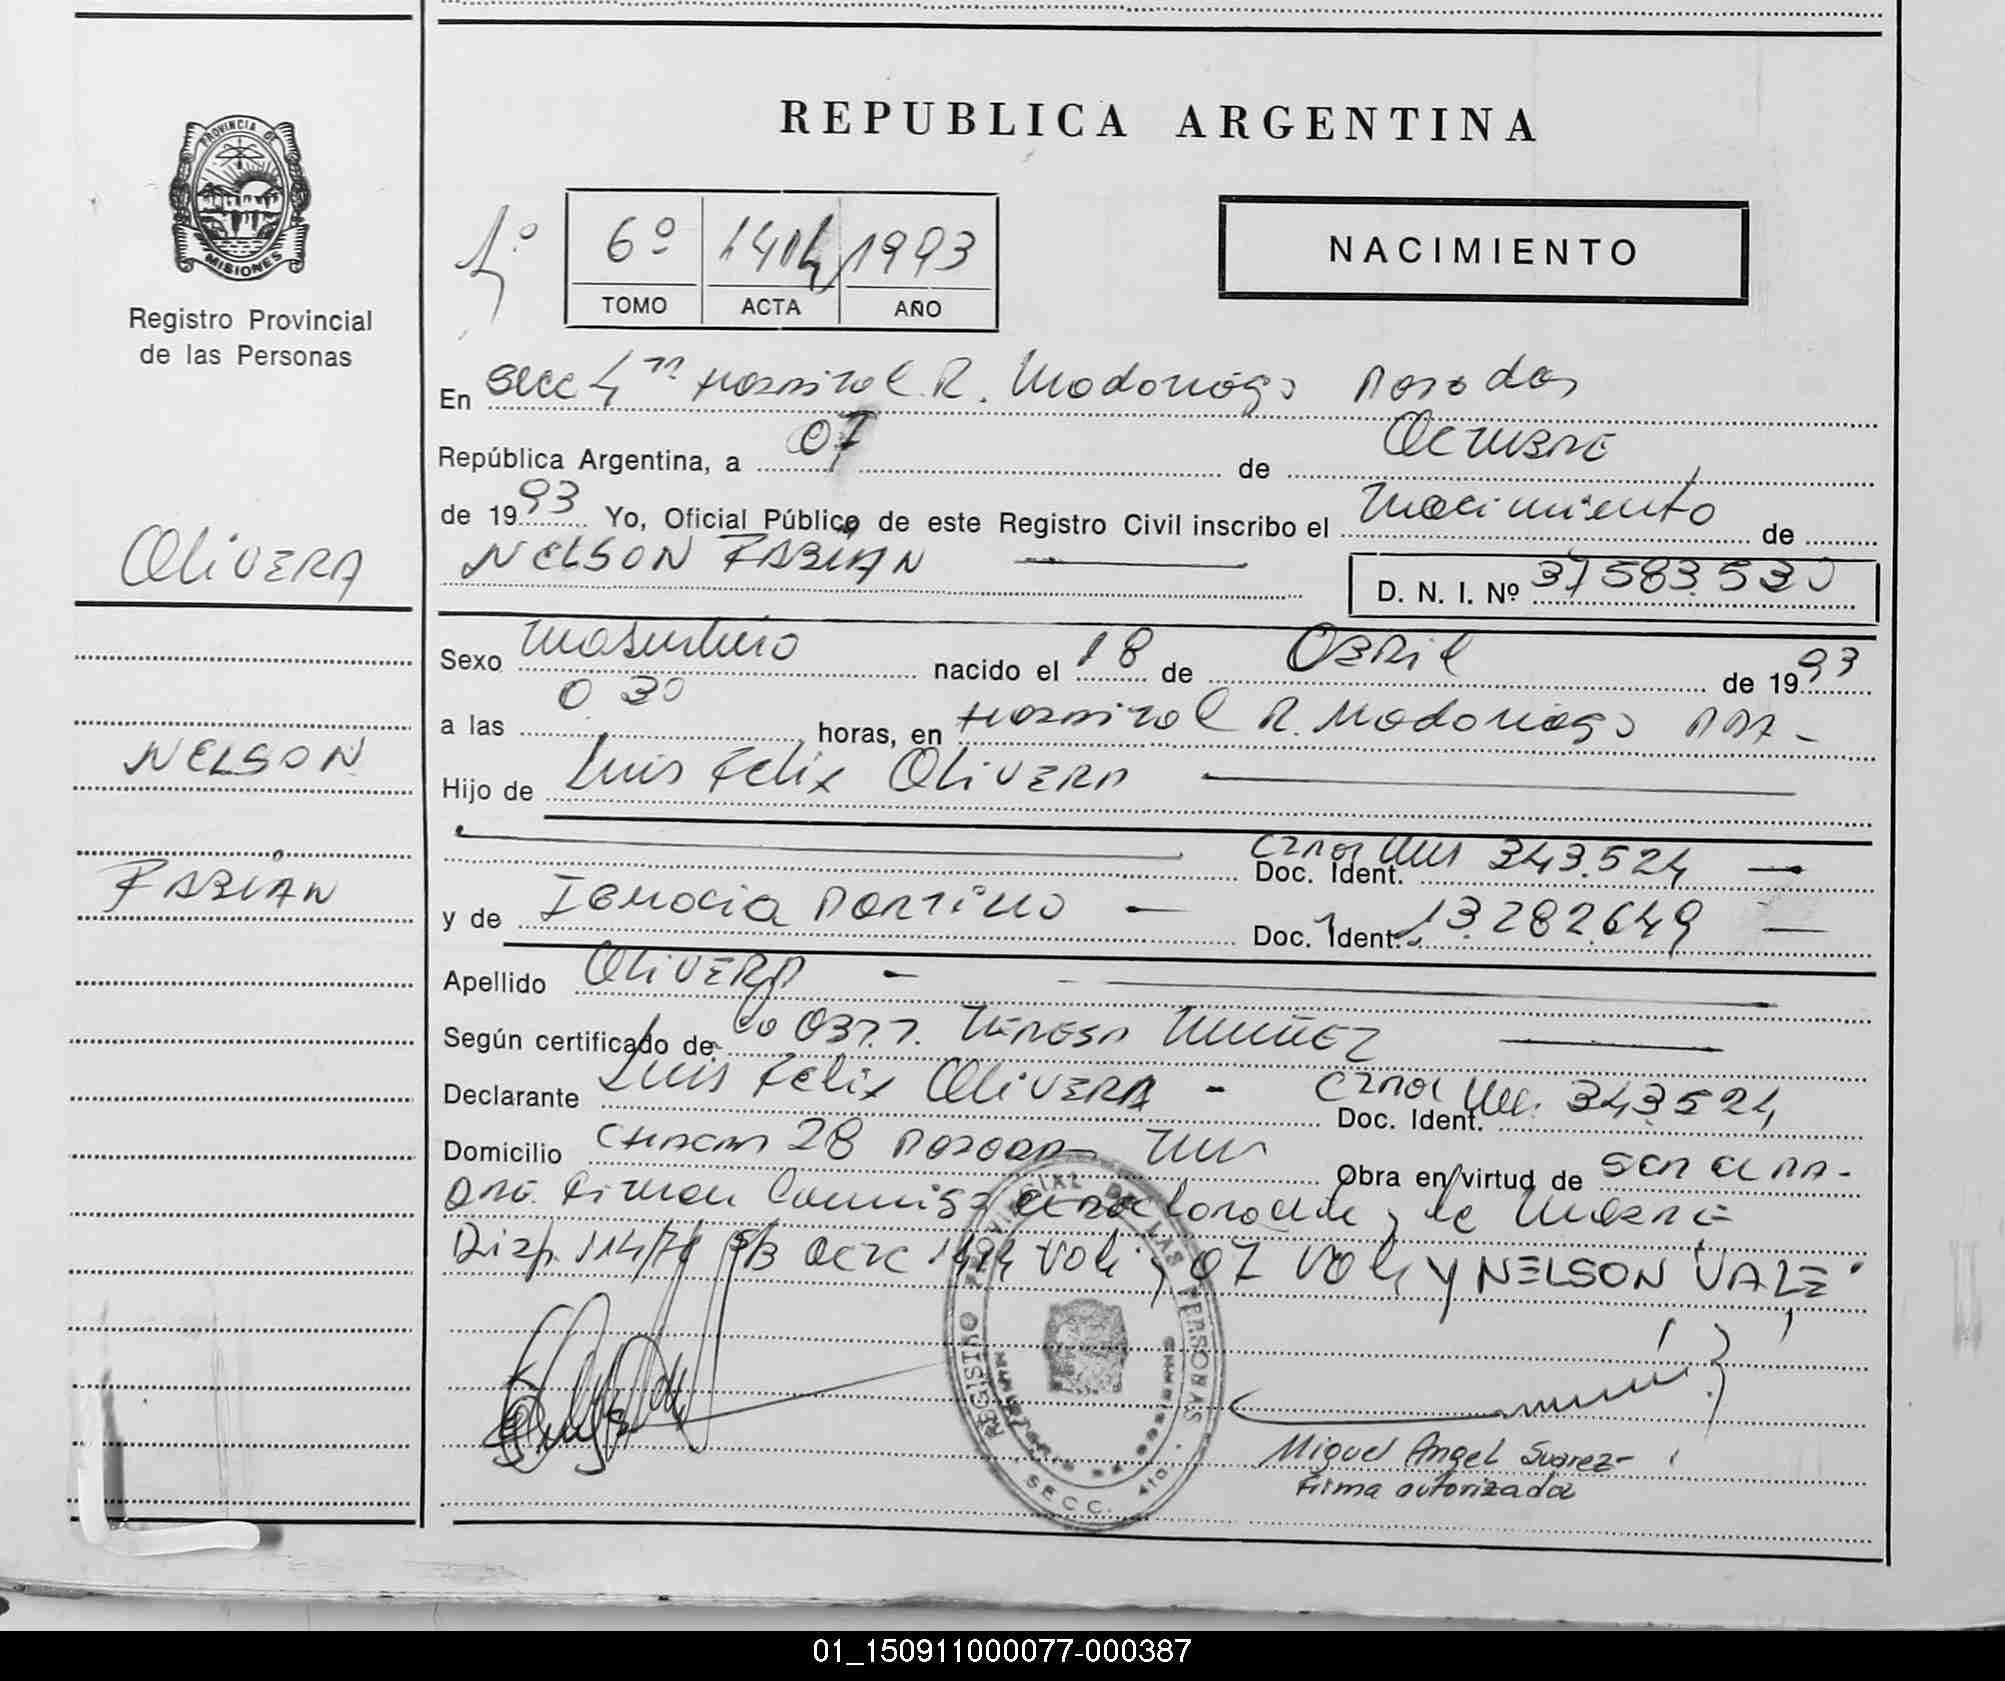 REPUBLICA ARGENTINA
PROVINCIA DE
MISIONES
Registro Provincial
de las Personas
1º
6º 1414 1993
TOMO ACTA AÑO
NACIMIENTO
En Secc 4ta Hospital R. Madariaga Posadas
República Argentina, a 07 de Octubre
de 1993 Yo, Oficial Público de este Registro Civil inscribo el Nacimiento de
NELSON FABIAN D. N. I. Nº 37583.530
OLIVERA
Sexo Masculino nacido el 18 de ABRIL de 1993
a las 0 30 horas, en Hospital R. Madariaga PDA -
NELSON
Hijo de Luis Felix OLIVERA
Doc. Ident. 343.524
FABIAN
y de Ignacia Doc. Ident. 13.282.649
Apellido OLIVERA
Según certificado de la OBST. TERESA MUÑEZ
Declarante Luis Felix OLIVERA - Doc. Ident. 343524
Domicilio CHACRA 28 POSADAS Mis Obra en virtud de ser el PA-
DRE. Firman Conmigo el declarante y la MADRE
Disp. 114/76 S/B ACTA 1414 Vale y 07 Vale Y NELSON VALE
REGISTRO PROVINCIAL DE LAS PERSONAS
SECC. 4ta.
Miguel Angel Suarez
Firma autorizada
01_150911000077-000387